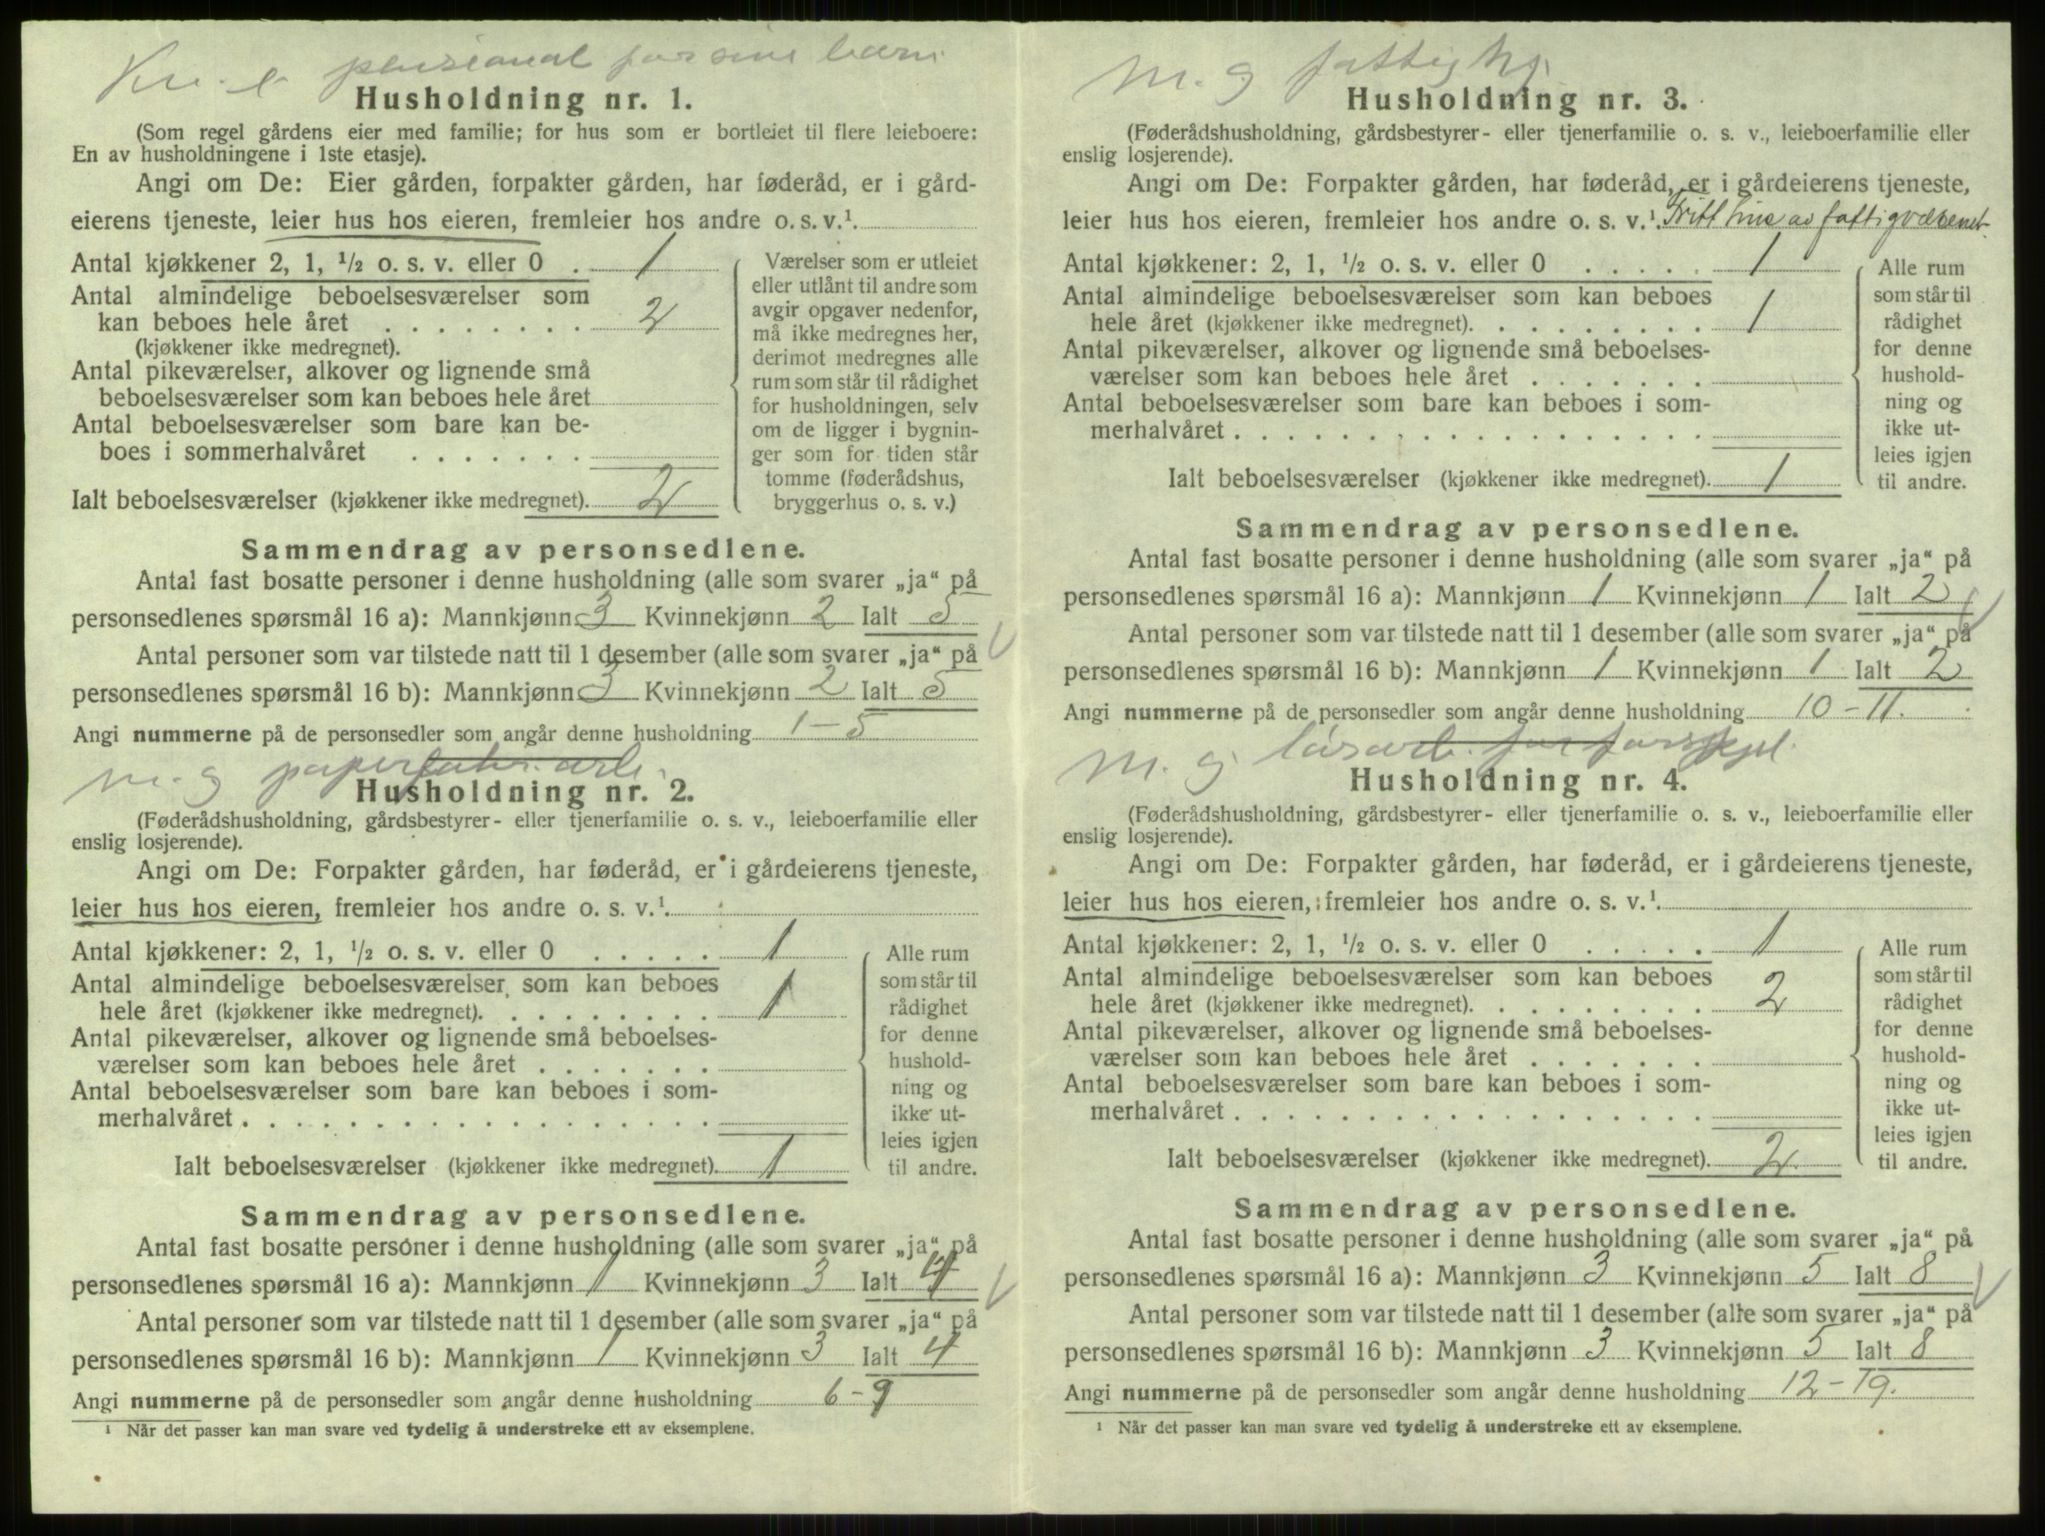 Kv. e pensionat for sine barn
Husholdning nr. 1.
(Som regel gårdens eier med familie; for hus som er bortleiet til flere leieboere:
En av husholdningene i 1ste etasje).
Angi om De: Eier gården, forpakter gården, har føderåd, er i gård-
eierens tjeneste, leier hus hos eieren, fremleier hos andre o. s. v.¹
Antal kjøkkener 2, 1, ½ o. s. v. eller 0 . 1
Antal almindelige beboelsesværelser som
kan beboes hele året . . . . . . . . 2
(kjøkkener ikke medregnet).
Antal pikeværelser, alkover og lignende små
beboelsesværelser som kan beboes hele året
Antal beboelsesværelser som bare kan be-
boes i sommerhalvåret . . . . . . .
Ialt beboelsesværelser (kjøkkener ikke medregnet). 2
Værelser som er utleiet
eller utlånt til andre som
avgir opgaver nedenfor,
må ikke medregnes her,
derimot medregnes alle
rum som står til rådighet
for husholdningen, selv
om de ligger i bygnin-
ger som for tiden står
tomme (føderådshus,
bryggerhus o. s. v.)
Sammendrag av personsedlene.
Antal fast bosatte personer i denne husholdning (alle som svarer „ja“ på
personsedlenes spørsmål 16 a): Mannkjønn 3 Kvinnekjønn 2 Ialt 5
Antal personer som var tilstede natt til 1 desember (alle som svarer „ja“ på
personsedlenes spørsmål 16 b): Mannkjønn 3 Kvinnekjønn 2 Ialt 5
Angi nummerne på de personsedler som angår denne husholdning 1-5
m. g papirfabr. arb.
Husholdning nr. 2.
(Føderådshusholdning, gårdsbestyrer- eller tjenerfamilie o. s. v., leieboerfamilie eller
enslig losjerende).
Angi om De: Forpakter gården, har føderåd, er i gårdeierens tjeneste,
leier hus hos eieren, fremleier hos andre o. s. v.¹
Antal kjøkkener: 2, 1, ½ o. s. v. eller 0 . . . . . 1
Antal almindelige beboelsesværelser som kan beboes
hele året (kjøkkener ikke medregnet). . . . . . . . . 1
Antal pikeværelser, alkover og lignende små beboelses-
værelser som kan beboes hele året . . . . . . .
Antal beboelsesværelser som bare kan beboes i som-
merhalvåret . . . . . . . . . . . . . . . . . .
Ialt beboelsesværelser (kjøkkener ikke medregnet). 1
Alle rum
som står til
rådighet
for denne
hushold-
ning og
ikke ut-
leies igjen
til andre.
Sammendrag av personsedlene.
Antal fast bosatte personer i denne husholdning (alle som svarer „ja“ på
personsedlenes spørsmål 16 a): Mannkjønn 1 Kvinnekjønn 3 Ialt 4
Antal personer som var tilstede natt til 1 desember (alle som svarer „ja“ på
personsedlenes spørsmål 16 b): Mannkjønn 1 Kvinnekjønn 3 Ialt 4
Angi nummerne på de personsedler som angår denne husholdning 6-9
¹ Når det passer kan man svare ved tydelig å understreke ett av eksemplene.
m. g fattighj.
Husholdning nr. 3.
(Føderådshusholdning, gårdsbestyrer- eller tjenerfamilie o. s. v., leieboerfamilie eller
enslig losjerende).
Angi om De: Forpakter gården, har føderåd, er i gårdeierens tjeneste,
leier hus hos eieren, fremleier hos andre o. s. v.¹ Fritt hus av fattigvæsenet.
Antal kjøkkener: 2, 1, ½ o. s. v. eller 0 . . . . . 1
Antal almindelige beboelsesværelser som kan beboes
hele året (kjøkkener ikke medregnet). . . . . . . . . 1
Antal pikeværelser, alkover og lignende små beboelses-
værelser som kan beboes hele året . . . . . . .
Antal beboelsesværelser som bare kan beboes i som-
merhalvåret . . . . . . . . . . . . . . . . . .
Ialt beboelsesværelser (kjøkkener ikke medregnet). 1
Alle rum
som står til
rådighet
for denne
hushold-
ning og
ikke ut-
leies igjen
til andre.
Sammendrag av personsedlene.
Antal fast bosatte personer i denne husholdning (alle som svarer „ja“ på
personsedlenes spørsmål 16 a): Mannkjønn 1 Kvinnekjønn 1 Ialt 2
Antal personer som var tilstede natt til 1 desember (alle som svarer „ja“ på
personsedlenes spørsmål 16 b): Mannkjønn 1 Kvinnekjønn 1 Ialt 2
Angi nummerne på de personsedler som angår denne husholdning 10-11.
m. g løsarb.
Husholdning nr. 4.
(Føderådshusholdning, gårdsbestyrer- eller tjenerfamilie o. s. v., leieboerfamilie eller
enslig losjerende).
Angi om De: Forpakter gården, har føderåd, er i gårdeierens tjeneste,
leier hus hos eieren, fremleier hos andre o. s. v.¹
Antal kjøkkener: 2, 1, ½ o. s. v. eller 0 . . . . . 1
Antal almindelige beboelsesværelser som kan beboes
hele året (kjøkkener ikke medregnet). . . . . . . . . 2
Antal pikeværelser, alkover og lignende små beboelses-
værelser som kan beboes hele året . . . . . . .
Antal beboelsesværelser som bare kan beboes i som-
merhalvåret . . . . . . . . . . . . . . . . . .
Ialt beboelsesværelser (kjøkkener ikke medregnet). 2
Alle rum
som står til
rådighet
for denne
hushold-
ning og
ikke ut-
leies igjen
til andre.
Sammendrag av personsedlene.
Antal fast bosatte personer i denne husholdning (alle som svarer „ja“ på
personsedlenes spørsmål 16 a): Mannkjønn 3 Kvinnekjønn 5 Ialt 8
Antal personer som var tilstede natt til 1 desember (alle som svarer „ja“ på
personsedlenes spørsmål 16 b): Mannkjønn 3 Kvinnekjønn 5 Ialt 8
Angi nummerne på de personsedler som angår denne husholdning 12-19.
¹ Når det passer kan man svare ved tydelig å understreke ett av eksemplene.